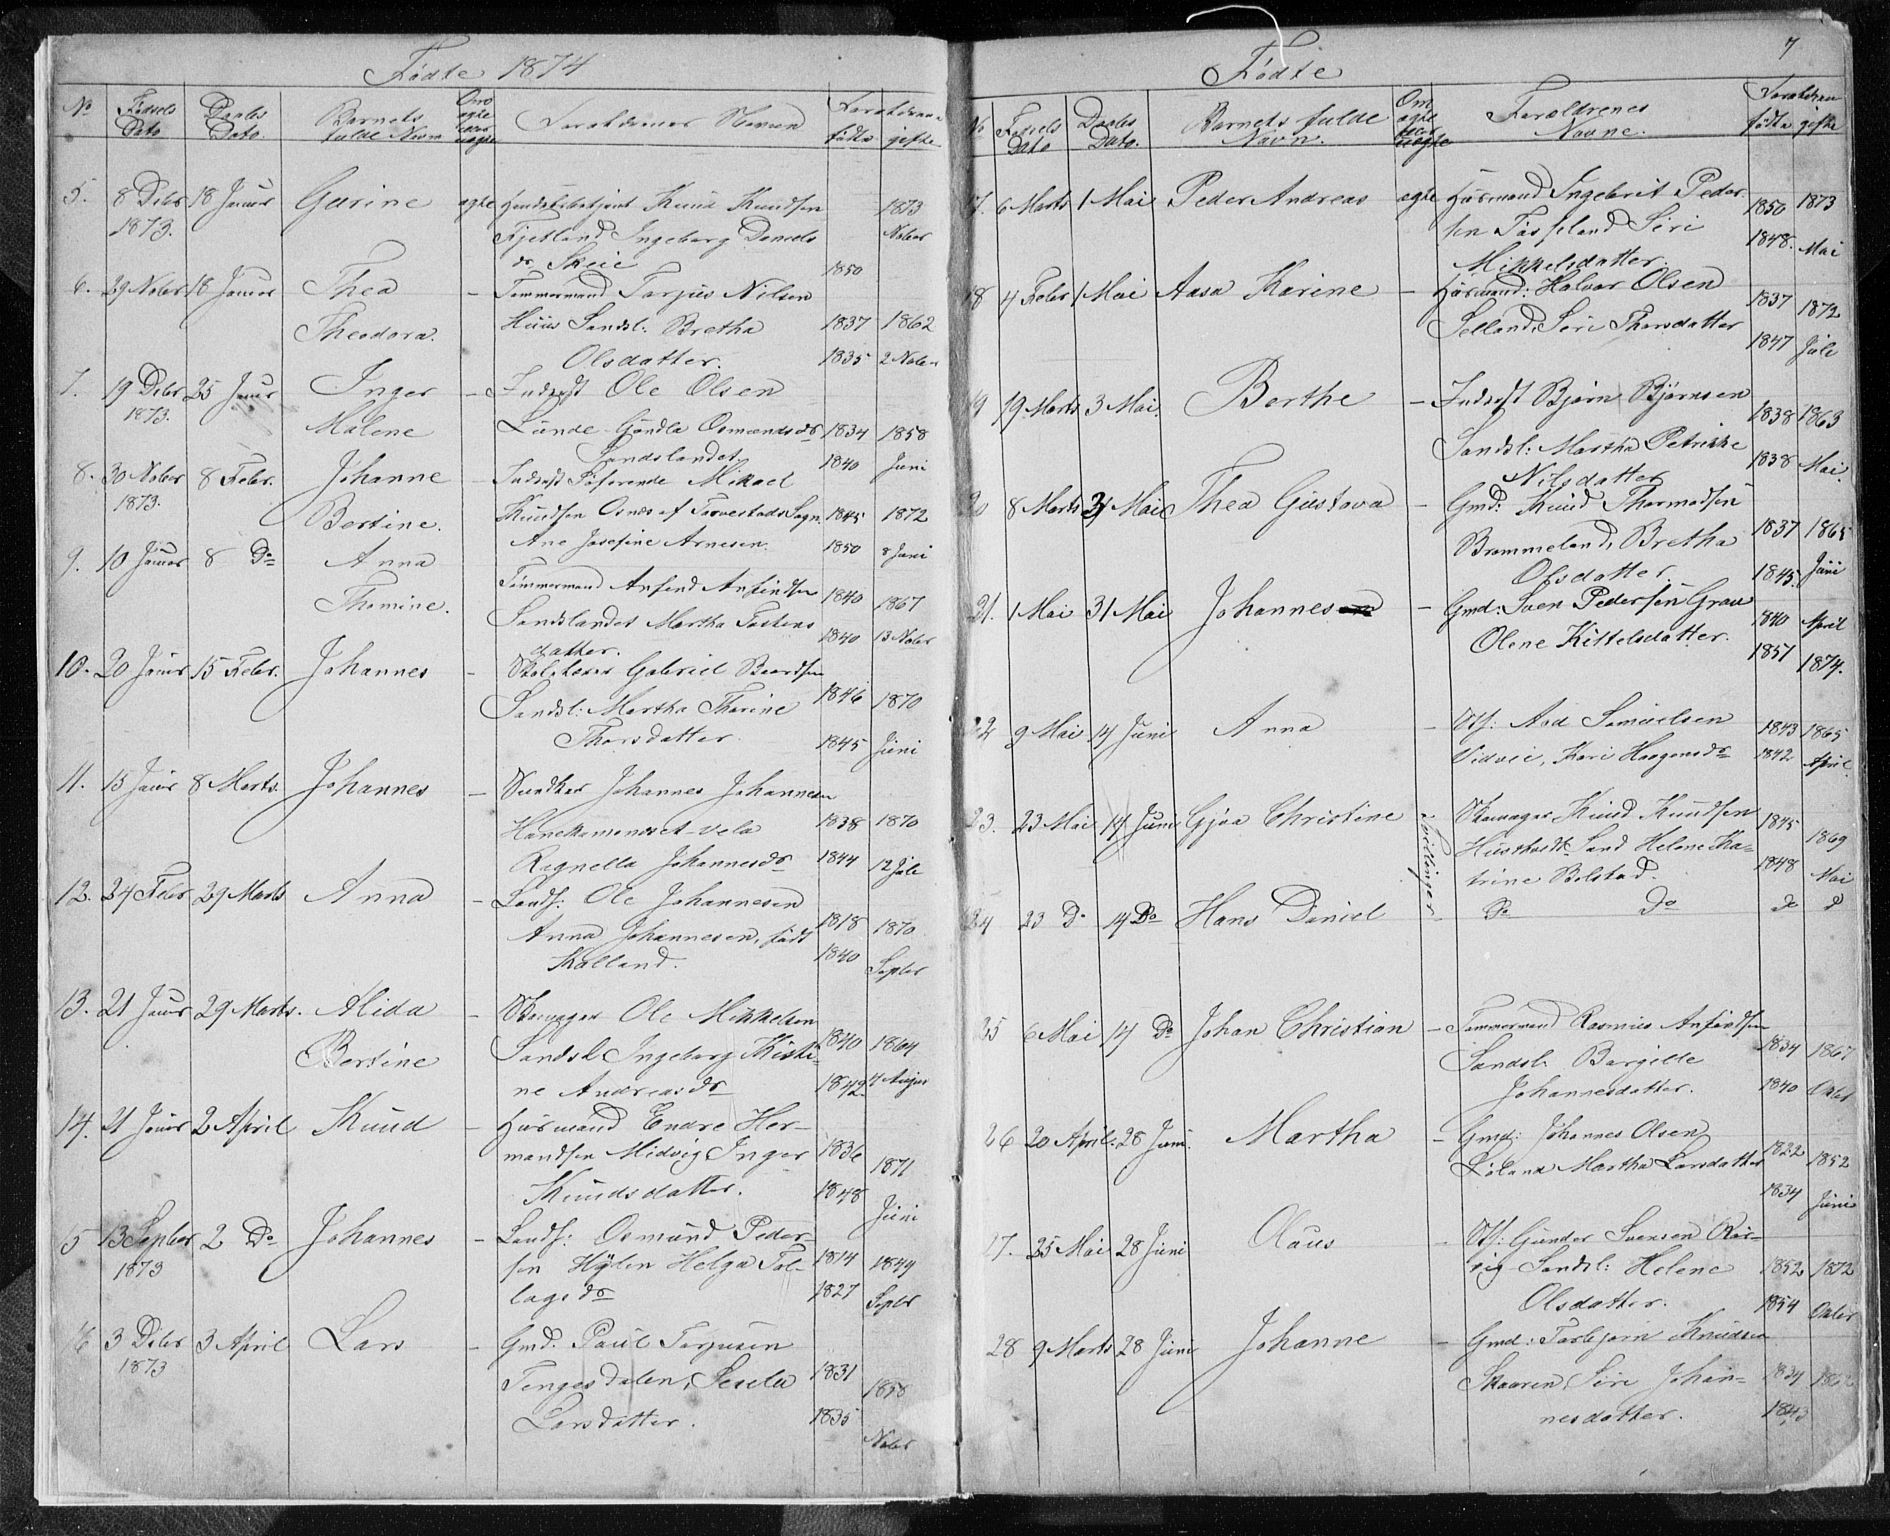 Fødte 1874
No
Fødsels Dato
Daabs Dato.
Barnets fulde Navn
Forældrenes Navn
fødte
gifte
5. 8 Decbr 18 Januar Gurine ægte Knud Knudsen 1873
1873. Fjetland Ingeborg Daniels Novbr
dr Skeie 1850
6. 29 Novbr 18 Januar Thea - Tømmermand Torjus Nilsen
Theodora. Huus Sandsl: Bretha 1837 1862
Olsdatter. 1835 2 Novbr
7. 19 Decbr 25 Januar Inger - Inderst Ole Olsen
1873. Malene Lunde Gundla Osmundsdr 1834 1858
Sandslandet. 1840 Juni
8. 30 Novbr 8 Febr. Johanne - Inderst Søfarende Mikael
1873. Bertine. Knudsen Osnes af Torvestads Sogn 1845 1872
Ane Josefine Arnesen. 1850 8 Juni
9. 10 Januar 8 Do Anna Tømmermand Anfind Anfindsen 1840 1867
Thomine. Sandslandet Martha Tostens 1840 13 Novbr
datter.
10. 20 Januar 15 Febr. Johannes - Skolelærer Gabriel Baardsen
Sandsl: Martha Thorine 1846 1870
Thorsdatter. 1845 Juni
11. 15 Januar 8 Marts. Johannes - Johannes Johannesen
Vela 1838 1870
Ragnella Johannesdr 1844 12 Juli
12. 24 Febr 29 Marts Anna - Ole Johannesen 1818 1870
Anna Johannesen, født 1840
Kalland. Septbr
13. 21 Januar 29 Marts. Alida - Ole Mikkelsen
Bertine Sandsl. Ingeborg Kristi- 1840 1864
ne Andreasdr 1842. 4 August
14. 21 Januar 2 April Knud - Huusmand Endre Her-
mandsen Midvig Inger 1836 1871
Knudsdatter. 1848 Juni
15 13 Septbr 2 Do Johannes - Osmund Peder-
1873 sen Hylen Helga Tol- 1814 1849
lagsdr 1827 Septbr
16 3 Decbr 3 April Lars - Gmd. Paul Torjusen
1873 Tengesdalen, Sesela 1831 1858
Larsdatter. 1835 Novbr
Fødte
7
No
Fødsels Dato
Daabs Dato.
Barnets fulde Navn.
Om ægte eller uægte
Forældrenes Navne.
fødte
gifte
17. 6 Marts 1 Mai Peder Andreas ægte Huusmand Ingebrit Peder
sen Fosseland Siri 1850 1873
Mikkelsdatter. 1848. Mai
18 4 Febr 1 Mai Aasa Karine - Huusmand: Halvor Olsen
Selland, Siri Thorsdatter 1837 1872
1847 Juli
19 19 Marts 3 Mai. Berthe - Inderst Bjørn Bjørnsen 1838 1863
Sandsl: Martha Petrikke 1838 Mai.
Nilsdatter
20 8 Marts 31 Mai Thea Gustava - Gmd: Knud Thormodsen
Brommeland, Bretha 1837 1865
Olsdatter. 1845. Juni
21. 1 Mai 31 Mai Johannes - Gmd: Sven Pedersen Grav 1840 April
Olene Kittelsdatter. 1851 1874.
22 9 Mai 14 Juni Anna - Aad Samuelsen 1843 1865
Vidvei, Kari Haagensdr 1842 April
23. 23 Mai 14 Juni Gjøa Christine Tvillinger Knud Knudsen 1845 1869
Sand Helene Ka= 1848 Mai
trine Bolstad.
24 23 Do 14 Do Hans Daniel Do Do Do Do
25 6 Mai 14 Do Johan Christian - Tømmermand Rasmus Anfindsen
Sandsl. Bergitte 1834 1867
Johannesdatter. 1840 Octbr
26 20 April. 28 Juni. Martha - Gmd: Johannes Olsen 1822 1852
Løland Martha Larsdatter 1834 Juni
27. 25 Mai 28 Juni Olaus - Gunder Svensen
vig Sandsl: Helene 1852 1872
Olsdatter. 1854 Octbr
28 9 Marts 28 Juni Johanne - Gmd: Torbjørn Knudsen
Skaaren, Siri Johan- 1834 1862
nesdatter. 1843